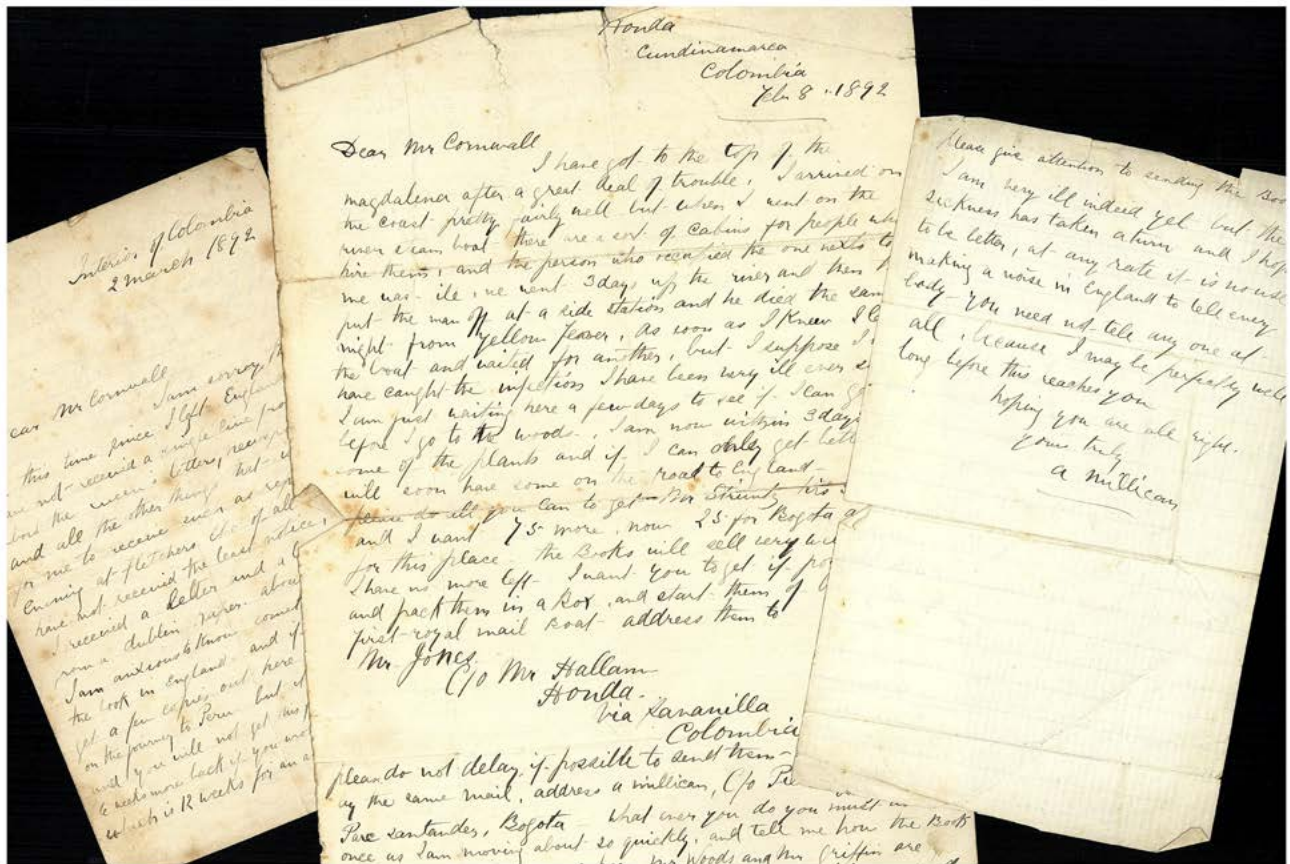 Interior of Colombia
2 March 1892
Mr Cornwall
I am sorry
this time since I left England
not received a single line
and all the other things
for me to receive such as
Evening at Fletchers Etc of all
have not received the least notice,
I received a letter and a
from a dublin paper about
I am anxious to know
the book in England and if
get a few copies out here
on the journey to Peru but if
and you will not get this
6 weeks more back if you
which is 12 weeks for an
Honda
Cundinamarca
Colombia
Feb 8 . 1892
Dear Mr Cornwall
I have got to the top of the
magdalena after a great deal of trouble. I arrived on
the coast pretty fairly well but when I went on the
river steam boat there are a sort of cabins for people who
hire them, and the person who occupied the one next to
me was ile, we went 3 days up the river and then
put the man off at a side station and he died the same
night from yellow fever, As soon as I knew I
the boat and waited for another, but I suppose I
have caught the infection I have been very ill ever
I am just waiting here a few days to see if I can
before I go to the woods. I am now within 3 days
some of the plants and if I can only get
will soon have some on the road to England
please do all you can to get
and I want 75 more, now 25 for Bogota
for this place the Books will sell very
I have no more left. I want you to get if
and pack them in a Box, and start them
first royal mail Boat address them to
Mr. Jones
C/o Mr Hallam
Honda.
via Savanilla
Colombia
please do not delay if possible to send them
by the same mail, address a millican, C/o
Parc santander, Bogota what ever you do you must
once as I am moving about so quickly, and tell me how the Book
Mr Woods and Mr Griffin are
please give attention to sending the
I am very ill indeed yet but the
sickness has taken a turn and I hope
to be better, at any rate it is no use
making a noise in England to tell every
body you need not tell any one at
all, because I may be perfectly well
long before this reaches you
hoping you are all right.
yours truly
a millican